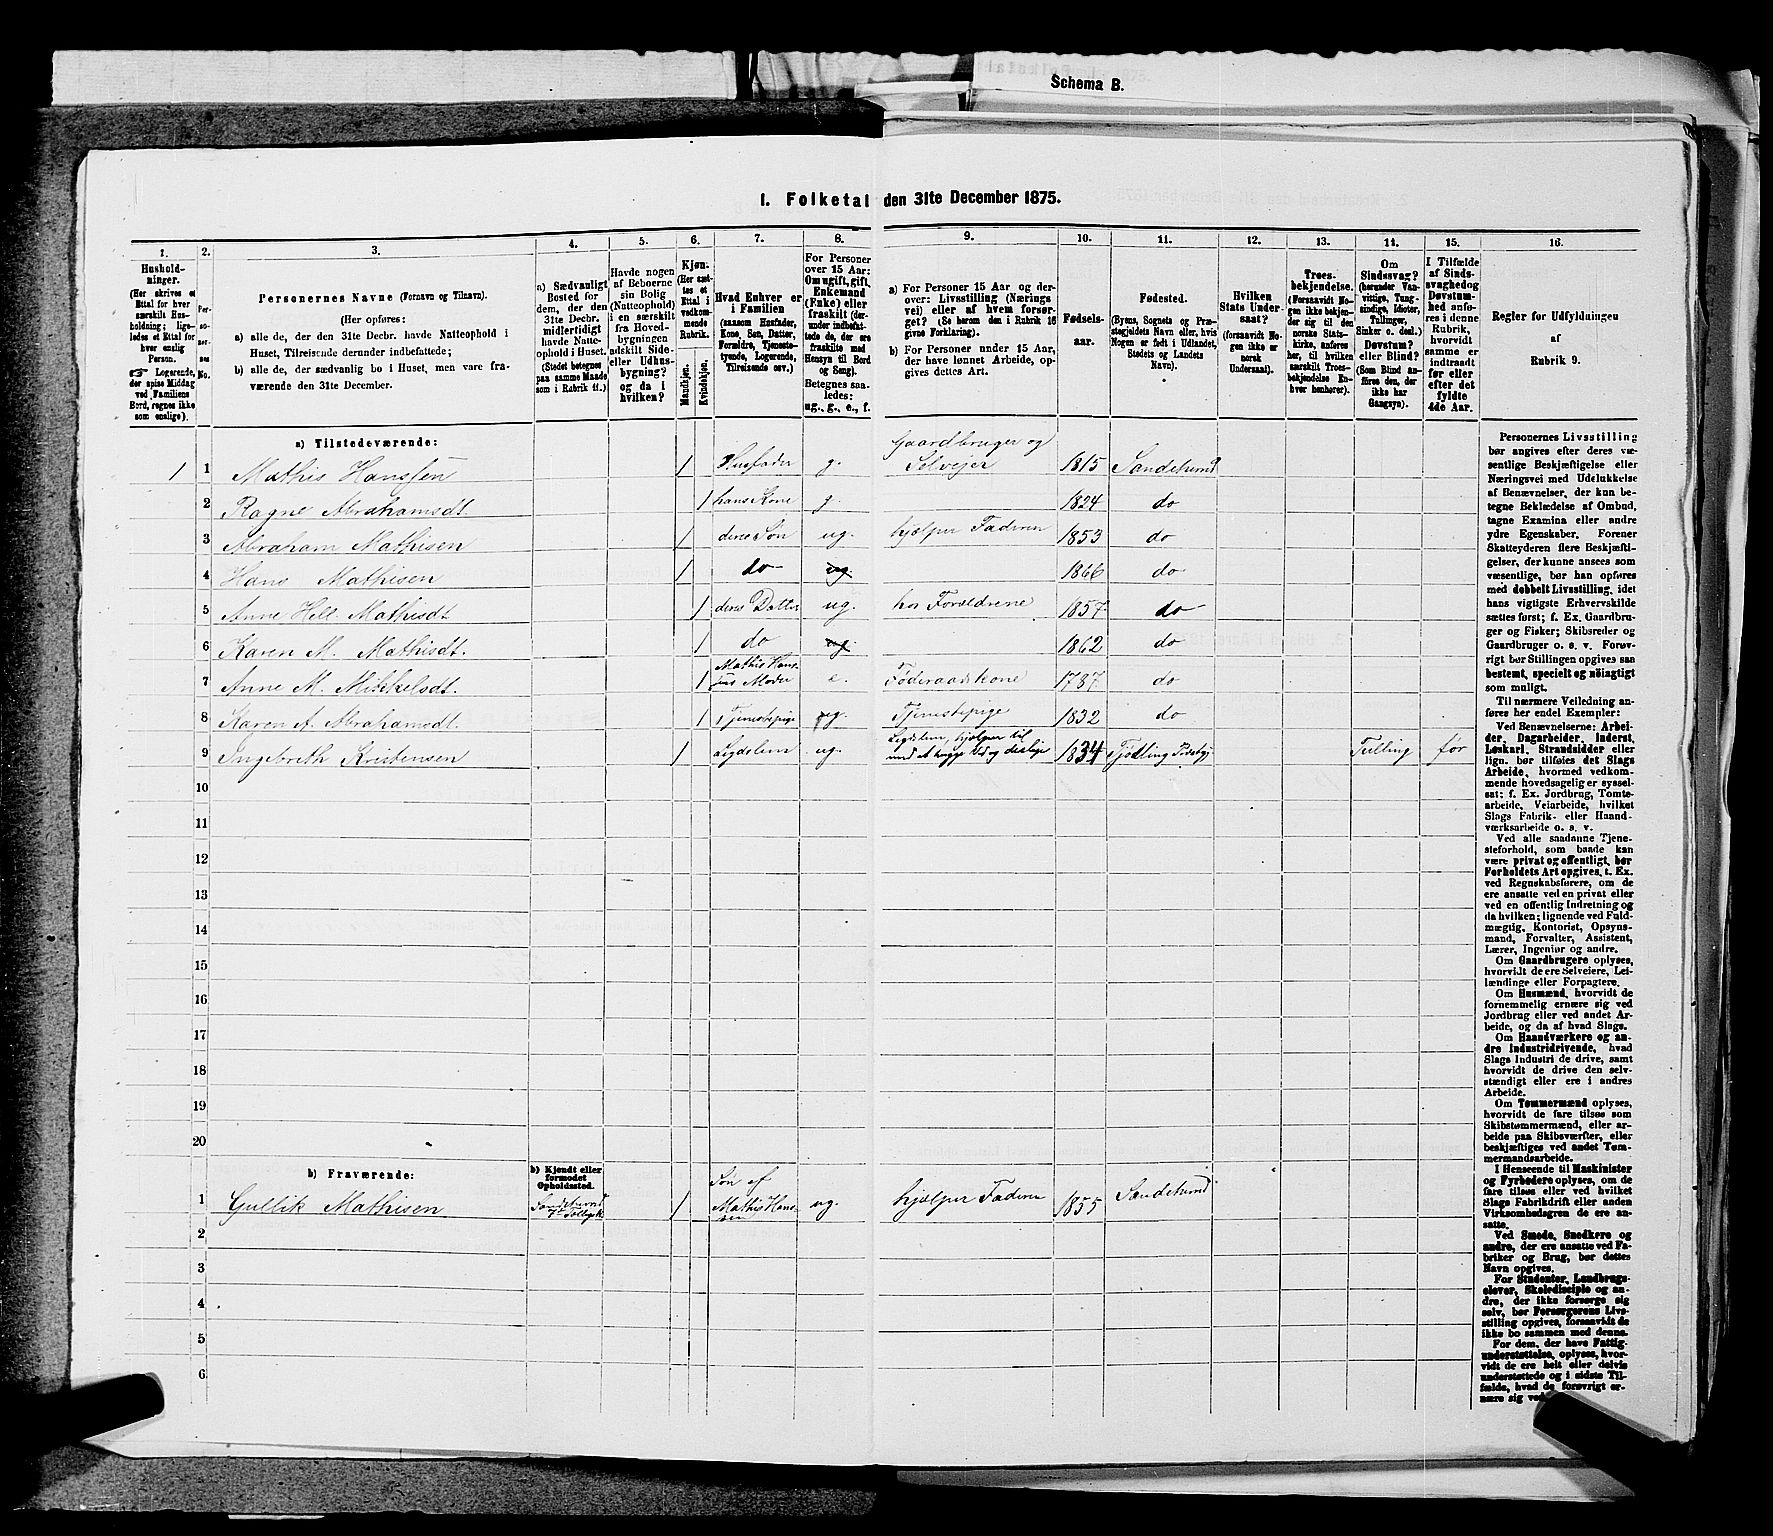 Schema B.
1. Folketal den 31te December 1875.
1. 2. 3. 4. 5. 6. 7. 8. 9. 10. 11. 12. 13. 14. 15. 16.
Hushold-
ninger.
(Her skrives et
Ettal for hver
særskilt Hus-
holdning; lige-
ledes et Ettal for
hver enslig
Person.
☞ Logerende,
der spise Middag
ved Familiens
Bord, regnes ikke
som enslige).
Per-
so-
ner-
nes
No.
Personernes Navne (Fornavn og Tilnavn).
(Her opføres:
a) alle de, der den 31te Decbr. havde Natteophold i
Huset, Tilreisende derunder indbefattede;
b) alle de, der sædvanlig bo i Huset, men vare fra-
værende den 31te December.
a) Sædvanligt
Bosted for
dem, der den
31te Decbr.
midlertidigt
havde Natte-
ophold i Huset.
(Stedet betegnes
paa samme Maade
som i Rubrik 11.)
Havde nogen
af Beboerne
sin Bolig
(Natteophold)
i en særskilt
fra Hoved-
bygningen
adskilt Side-
eller Udhus-
bygning?
og da i
hvilken?
Kjøn.
(Her sæt-
tes et
Ettal i
vedkom-
mende
Rubrik.
Mandkjøn.
Kvindekjøn.
Hvad Enhver er
i Familien
(saasom Husfader,
Kone, Søn, Datter,
Forældre, Tjeneste-
tyende, Logerende,
Tilreisende osv.)
For Personer
over 15 Aar:
Om ugift, gift,
Enkemand
(Enke) eller
fraskilt (der-
under indbefat-
tede de, der ere
fraskilte med
Hensyn til Bord
og Seng).
Betegnes saa-
ledes:
ug., g., e., f.
a) For Personer 15 Aar og der-
over: Livsstilling (Nærings-
vei) eller af hvem forsør-
get? (Se herom den i Rubrik 16
givne Forklaring).
b) For Personer under 15 Aar,
der have lønnet Arbeide, op-
gives dettes Art.
Fødsels-
aar.
Fødested.
(Byens, Sognets og Præ-
stegjeldets Navn eller, hvis
Nogen er født i Udlandet,
Stedets og Landets
Navn).
Hvilken
Stats Under-
saat?
(forsaavidt No-
gen ikke er
norsk
Undersaat).
Troes-
bekjendelse.
(Forsaavidt No-
gen ikke bekjen-
der sig til den
norske Stats-
kirke, anføres
her, til hvilken
særskilt Troes-
bekjendelse En-
hver henhører).
Om
Sindssvag?
(herunder Van-
vittige, Tung-
sindige, Idioter,
Tullinger,
Sinker o. desl.)
Døvstum?
eller Blind?
(Som Blind an-
føres den, der
ikke har
Gangsyn).
I Tilfælde
af Sinds-
svaghed og
Døvstum-
hed anfø-
res i denne
Rubrik,
hvorvidt
samme er
indtraadt
før eller
efter det
fyldte
4de Aar.
Regler for Udfyldningen
af
Rubrik 9.
a) Tilstedeværende:
1 1 Mathis Hanssen 1 Husfader g. Gaardbruger og
Selvejer 1815 Sandehered
2 Ragne Abrahamsdt. 1 hans Kone g. 1824 do
3 Abraham Mathisen 1 deres Søn ug. hjælper Faderen 1853 do
4 Hans Mathisen 1 do ug. 1866 do
5 Anne Hell. Mathisdt 1 deres Datter ug. hos Forældrene 1857 do
6 Karen M. Mathisdt. 1 do ug. 1862 do
7 Anne M. Mikkelsdt. 1 Mathis Han-
sens Moder e. Føderaadskone 1787 do
8 Karen A. Abrahamsdt. 1 Tjenestepige ug. Tjenestepige 1832 do
9 Ingebreth Kristensen 1 Lægdslem ug. Lægdslem, hjælper til
med at hugge Ved og deslige 1834 Tjødling Tulling før
10
11
12
13
14
15
16
17
18
19
20
b) Fraværende:
b) Kjendt eller
formodet
Opholdssted.
1 Gullik Mathisen Sandehered 1 Søn af
Mathis Hans-
sen ug. hjælper Faderen 1855 Sandehered
2
3
4
5
6
Personernes Livsstilling
bør angives efter deres væ-
sentlige Beskjæftigelse eller
Næringsvei med Udelukkelse
af Benævnelser, der kun be-
tegne Beklædelse af Ombud,
tagne Examina eller andre
ydre Egenskaber. Forener
Skatteyderen flere Beskjæfti-
gelser, der kunne ansees som
væsentlige, bør han opføres
med dobbelt Livsstilling, idet
hans vigtigste Erhvervskilde
sættes først; f. Ex. Gaardbru-
ger og Fisker; Skibsreder og
Gaardbruger o. s. v. Forøv-
rigt bør Stillingen opgives saa
bestemt, specielt og nöiagtigt
som muligt.
Til nærmere Veiledning an-
føres her endel Exempler:
Ved Benævnelserne: Arbei-
der, Dagarbeider, Inderst,
Løskarl, Strandsidder eller
lign. bør tilføies det Slags
Arbeide, hvormed vedkom-
mende hovedsagelig er syssel-
sat; f. Ex. Jordbrug, Tomte-
arbeide, Veiarbeide, hvilket
Slags Fabrik- eller Haand-
værksarbeide o. s. v.
Ved alle saadanne Tjene-
steforhold, som baade kan
være privat og offentligt, bør
Forholdets Art opgives, t. Ex.
ved Regnskabsførere, om de
ere ansatte ved en privat eller
ved en offentlig Indretning og
da hvilken; lignende ved Fuld-
mægtig, Kontorist, Opsyns-
mand, Forvalter, Assistent,
Lærer, Ingeniør og andre.
Om Gaardbrugere oplyses,
hvorvidt de ere Selveiere, Lei-
lændinge eller Forpagtere.
Om Husmænd, hvorvidt de
fornemmelig ernære sig ved
Jordbrug eller ved andet Ar-
beide, og da af hvad Slags.
Om Haandværkere og an-
dre Industridrivende, hvad
Slags Industri de drive, samt
hvorvidt de drive den selv-
stændigt eller ere i andres
Arbeide.
Om Tømmermænd oplyses,
hvorvidt de fare tilsøs som
Skibstømmermænd, eller ar-
beide paa Skibsværfter, eller
beskjæftiges ved andet Tøm-
mermandsarbeide.
I Henseende til Maskinister
og Fyrbødere oplyses, om de
fare tilsøs eller ved hvilket
Slags Fabrikdrift eller anden
Virksomhedsgren de ere an-
satte.
Ved Smede, Snedkere og
andre, der ere ansatte ved Fa-
briker og Brug, bør dettes
Navn opgives.
For Studenter, Landbrugs-
elever, Skoledisciple og an-
dre, der ikke forsørge sig
selv, bør Forsørgerens Livs-
stilling opgives, forsaavidt de
ikke bo sammen med denne.
For dem, der have Fattig-
understøttelse, oplyses, hvor-
vidt de ere helt eller delvis
understøttede og i sidste Til-
fælde, hvad de forøvrigt er-
nære sig ved.